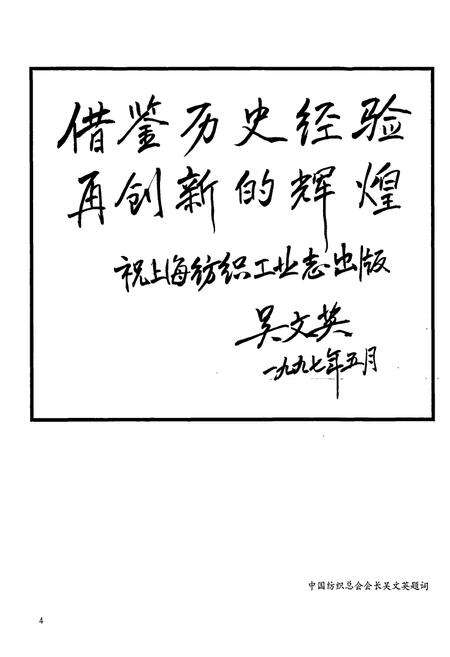 借鉴历史经验
再创新的辉煌
祝上海纺织工业志出版
吴文英
一九九七年五月
中国纺织总会会长吴文英题词
4